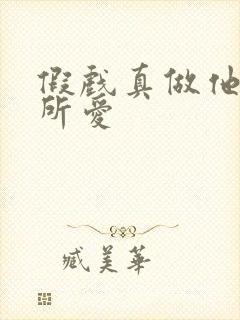 假戲真做他
所愛
臧美華